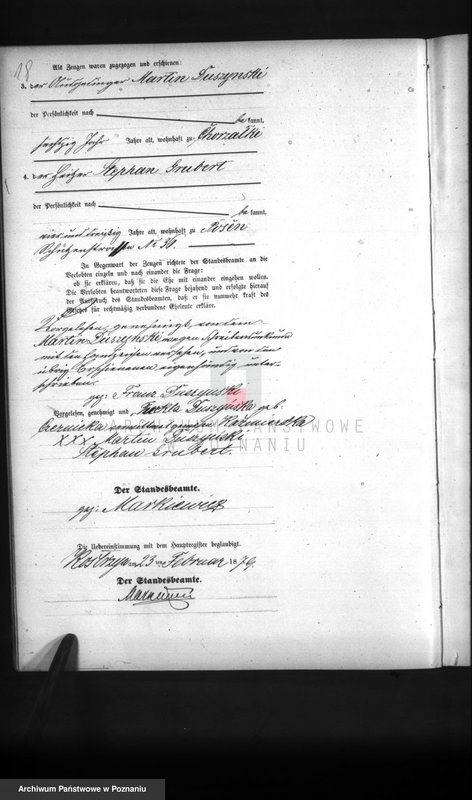 18
Als Zeugen waren zugezogen und erschienen:
3. der Martin Duszynski
der Persönlichkeit nach
be kannt,
sechzig Jahr Jahre alt, wohnhaft zu Chorzałki
4. der Heizer Stephan Grubert
der Persönlichkeit nach
be kannt,
vier und dreißig Jahre alt, wohnhaft zu Posen
Schützenstrasse No 31.
In Gegenwart der Zeugen richtete der Standesbeamte an die
Verlobten einzeln und nach einander die Frage:
ob sie erklären, daß sie die Ehe mit einander eingehen wollen.
Die Verlobten beantworteten diese Frage bejahend und erfolgte hierauf
der Ausspruch des Standesbeamten, daß er sie nunmehr kraft des
Gesetzes für rechtmäßig verbundene Eheleute erkläre.
Vorgelesen, genehmigt, von dem
Martin Duszynski wegen Schreibensunkunde
mit den Handzeichen versehen, und von den
übrig Erschienenen eigenhändig unter-
schrieben.
gez: Franz Duszynski
Vorgelesen, genehmigt und Tekla Duszynska geb:
Czernicka Kazmierska
XXX Martin Duszynski
Stephan Grubert.
ARCHIWUM PAŃSTWOWE W POZNANIU
Der Standesbeamte.
gez: Markiewicz
Die Uebereinstimmung mit dem Hauptregister beglaubigt.
Kostrzyn am 23 ten Februar 1876.
Der Standesbeamte.
Archiwum Państwowe w Poznaniu